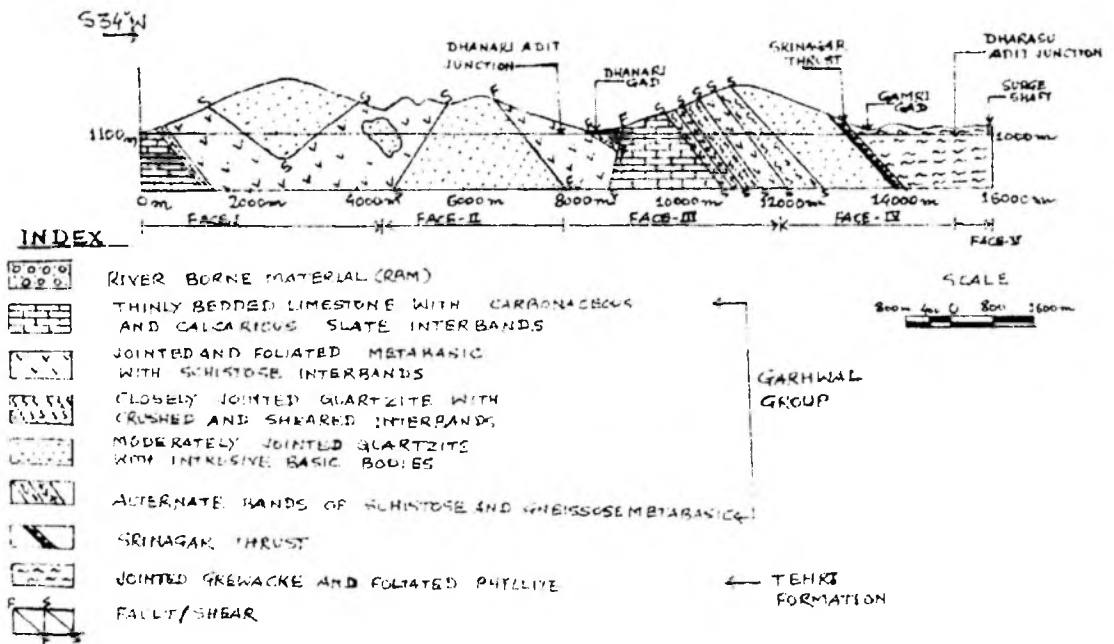 S34°W
DHANARI ADIT
JUNCTION
DHANARI
GAD
SRINAGAR
THRUST
GAMRI
GAD
DHARASU
ADIT JUNCTION
SURGE
SHAFT
S S S F F F S S S S S S
1100m
1000m
0m 2000m 4000m 6000m 8000m 10000m 12000m 14000m 16000m
FACE-I FACE-II FACE-III FASE-IV FACE-V
INDEX
RIVER BORNE MATERIAL (RBM)
THINLY BEDDED LIMESTONE WITH CARBONACEOUS
AND CALCARIOUS SLATE INTERBANDS
JOINTED AND FOLIATED METABASIC
WITH SCHISTOSE INTERBANDS
CLOSELY JOINTED QUARTZITE WITH
CRUSHED AND SHEARED INTERBANDS
MODERATELY JOINTED QUARTZITE
WITH INTRUSIVE BASIC BODIES
ALTERNATE BANDS OF SCHISTOSE AND GNEISSOSE METABASICS
SRINAGAR THRUST
JOINTED GREWACKE AND FOLIATED PHYLLITE
FAULT/SHEAR
F S
F S
SCALE
800m 400 0 800 1600m
GARHWAL
GROUP
TEHRI
FORMATION